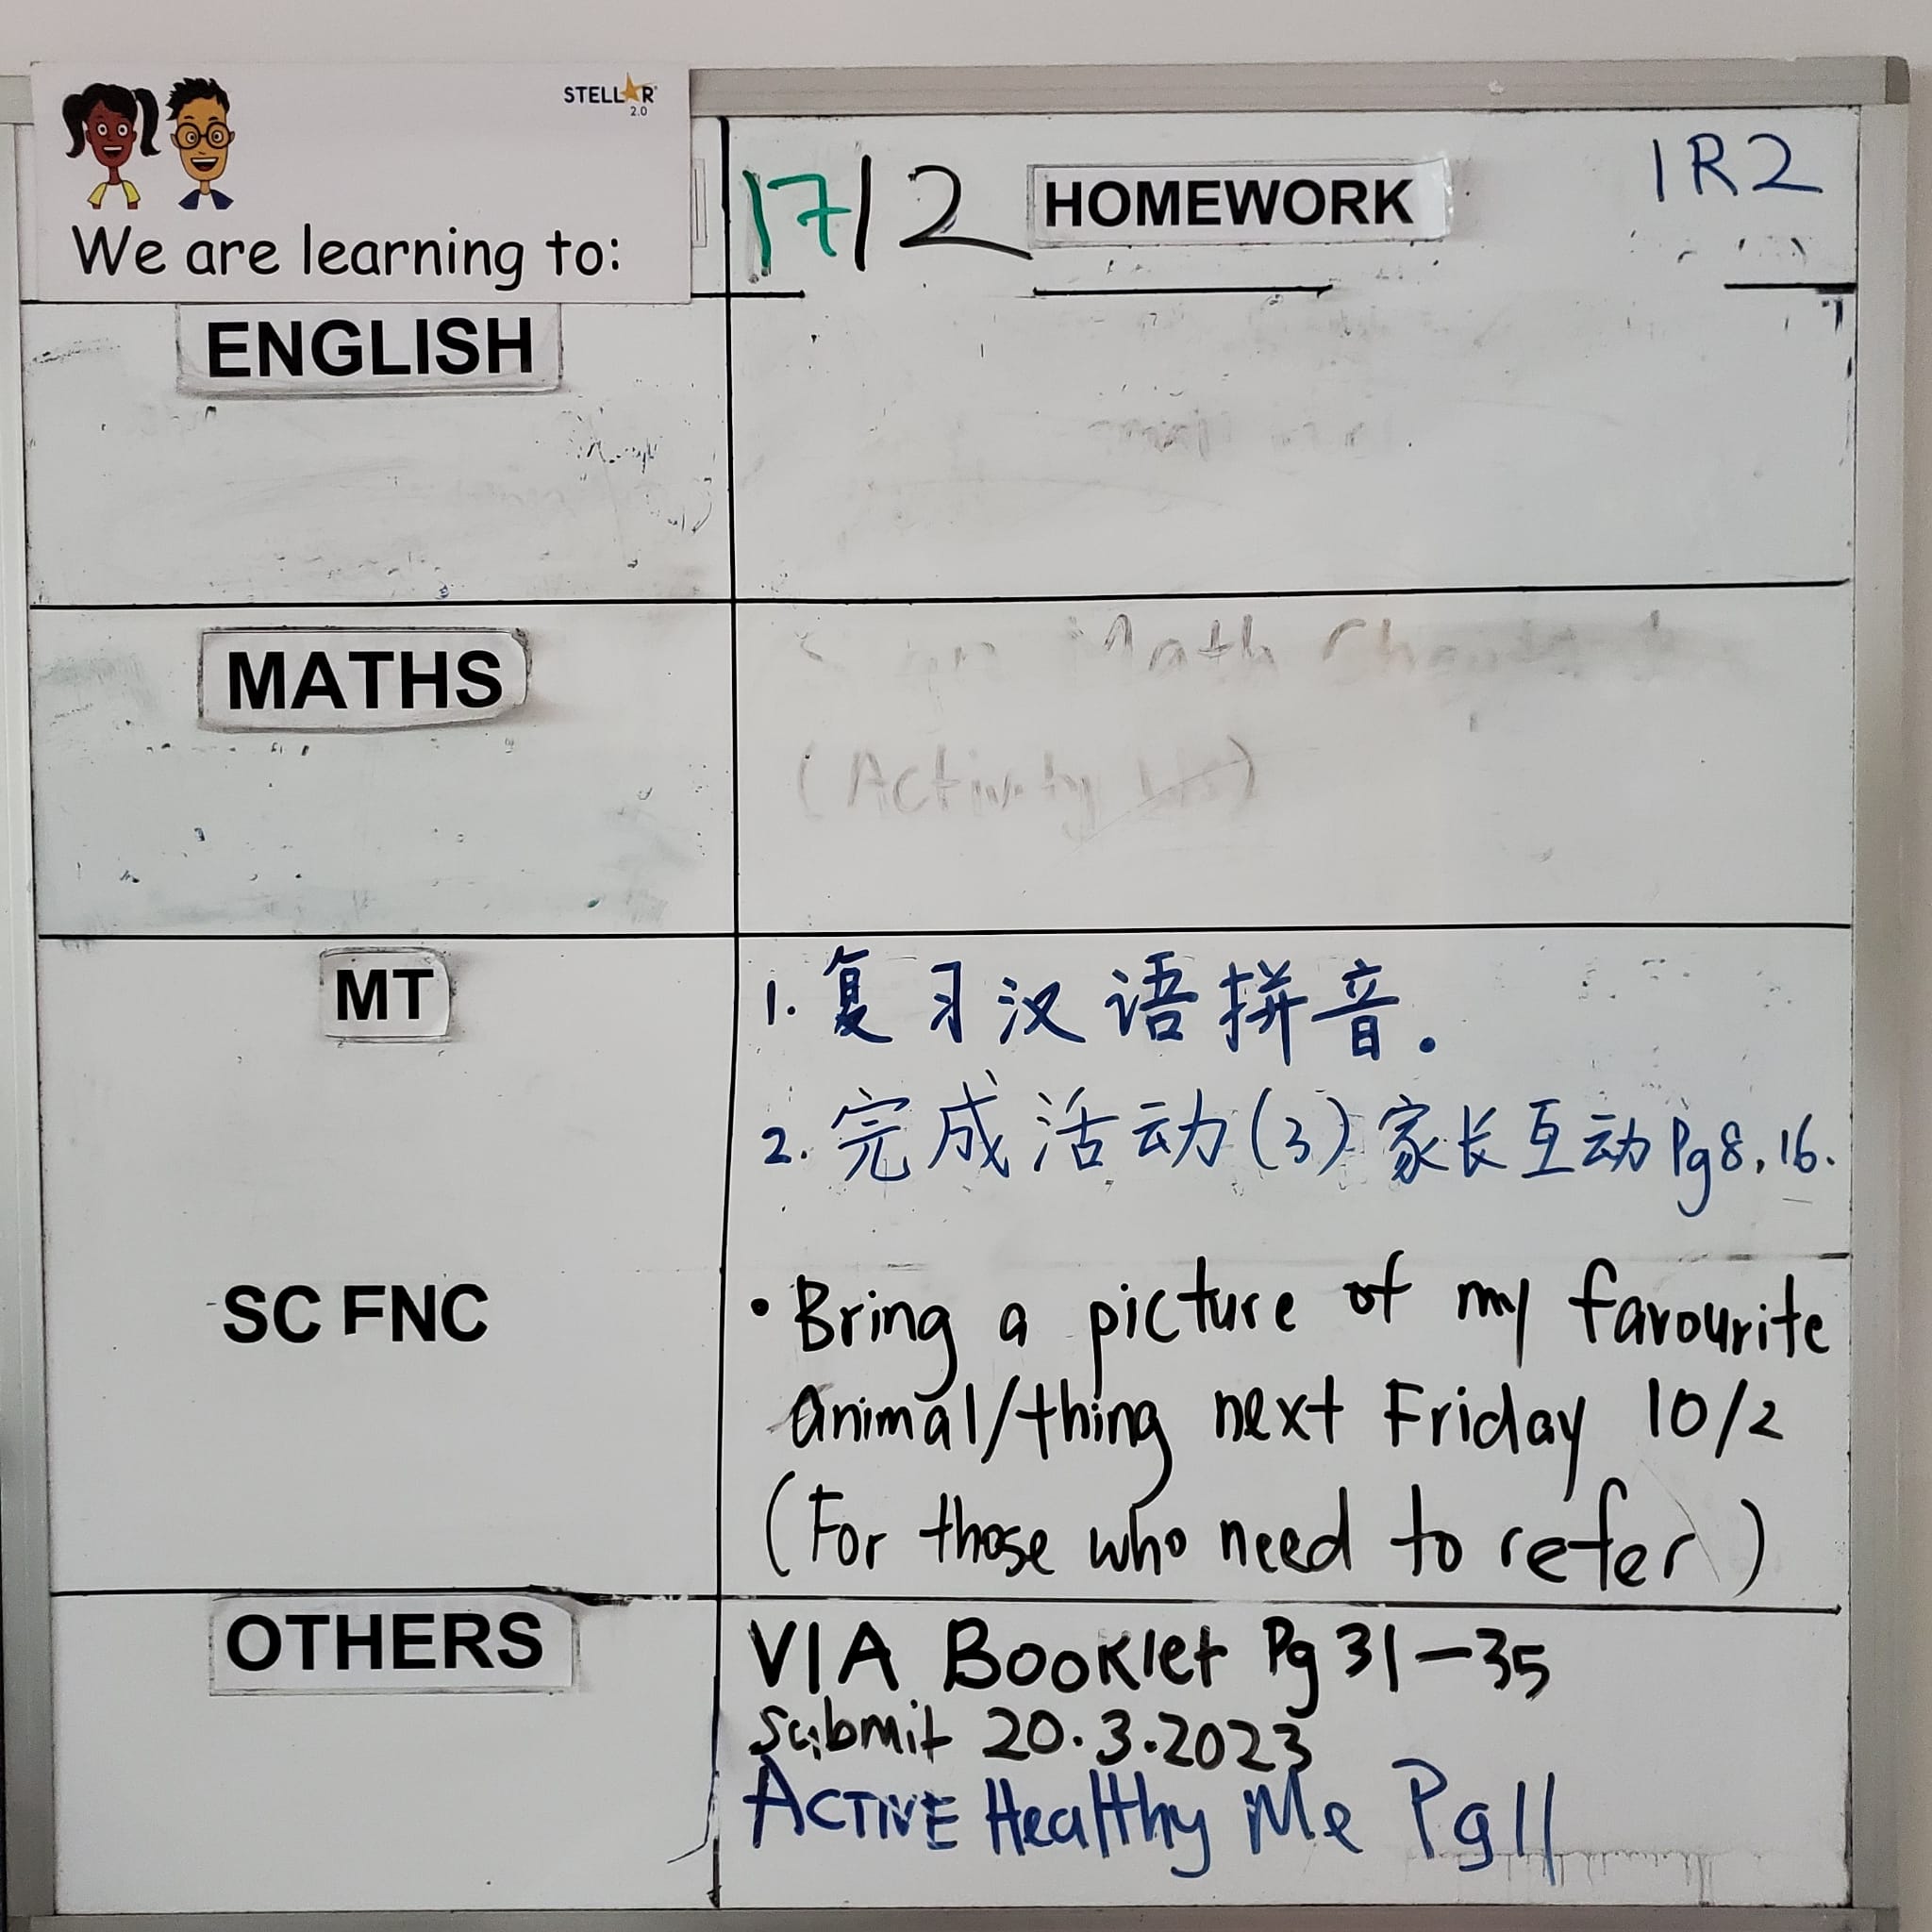 STELLAR
2.0
We are learning to:
17/2 HOMEWORK 1R2
ENGLISH
MATHS
Math
(Activity
MT
1. 复习汉语拼音.
2. 完成活动(3)家长互动 Pg8, 16.
SC FNC
• Bring a picture of my favourite
animal/thing next Friday 10/2
(For those who need to refer)
OTHERS
VIA Booklet Pg 31-35
submit 20.3.2023
ACTIVE Healthy Me Pg11